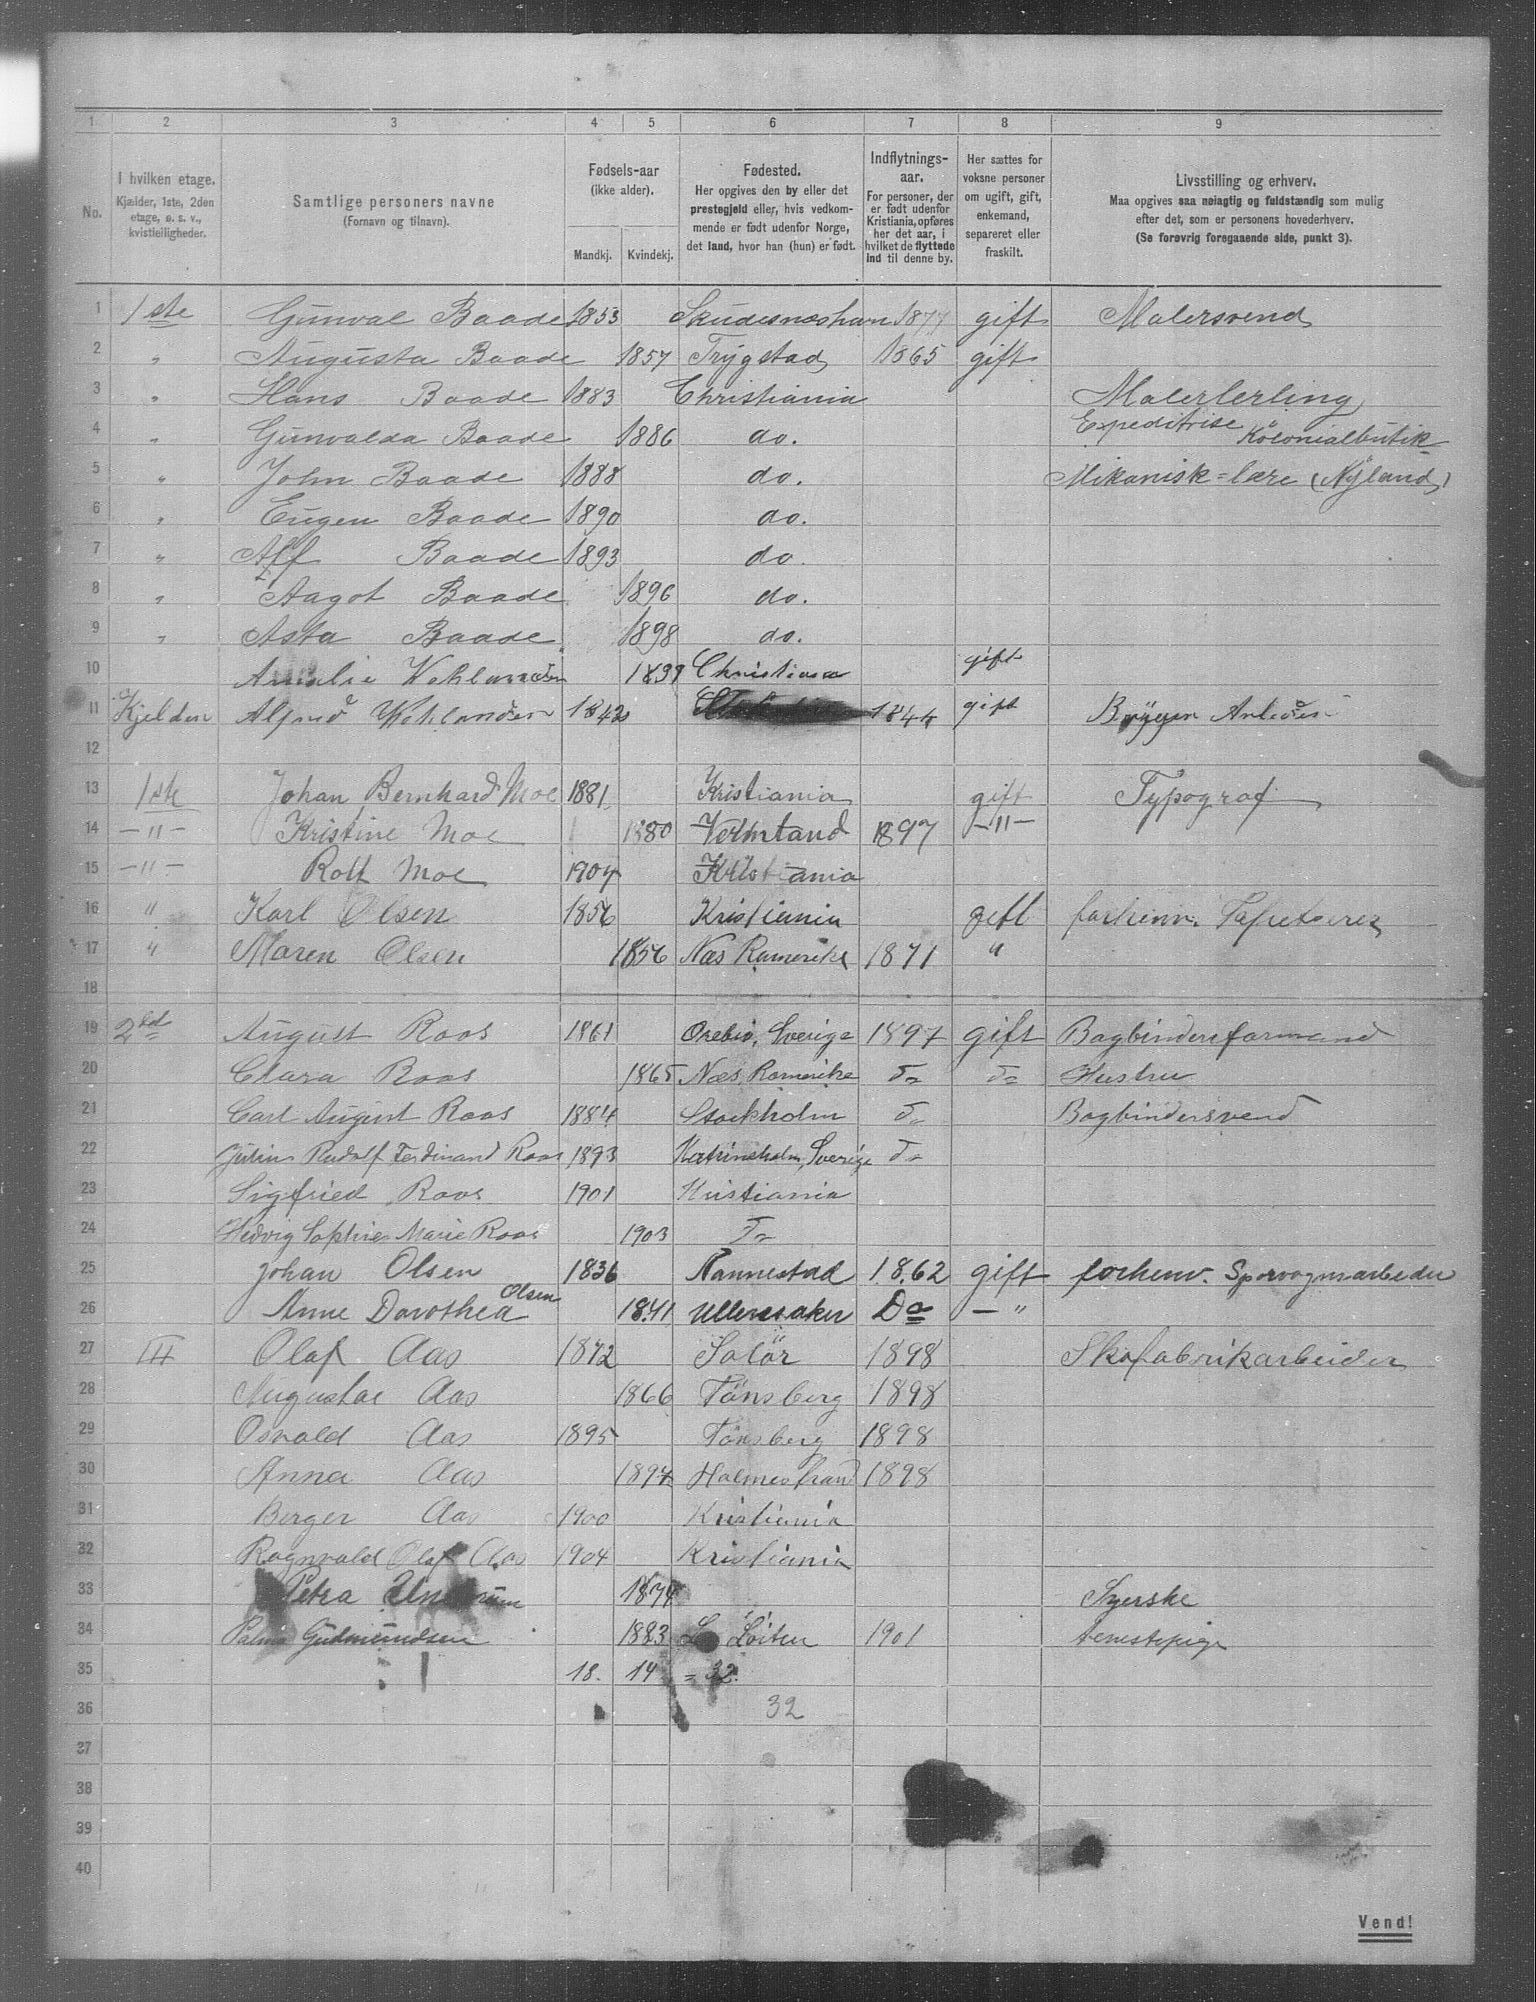 1 2 3 4 5 6 7 8 9
No.
I hvilken etage.
Kjælder, 1ste, 2den
etage, o. s. v.,
kvistleiligheder.
Samtlige personers navne
(Fornavn og tilnavn).
Fødsels-aar
(ikke alder).
Mandkj. Kvindekj.
Fødested.
Her opgives den by eller det
prestegjeld eller, hvis vedkom-
mende er født udenfor Norge,
det land, hvor han (hun) er født.
Indflytnings-
aar.
For personer, der
er født udenfor
Kristiania, opføres
her det aar, i
hvilket de flyttede
ind til denne by.
Her sættes for
voksne personer
om ugift, gift,
enkemand,
separeret eller
fraskilt.
Livsstilling og erhverv.
Maa opgives saa nøiagtig og fuldstændig som mulig
efter det, som er personens hovederhverv.
(Se forøvrig foregaaende side, punkt 3).
1 1ste Gunval Baade 1853 Skudesneshavn 1877 gift Malersvend
2 " Augusta Baade 1857 Trygstad 1865 gift
3 " Hans Baade 1883 Christiania Malerlerling
4 " Gunvalda Baade 1886 do. Expeditrise Kolonialbutik
5 " John Baade 1888 do. Mikanisk=lære (Nyland)
6 " Eugen Baade 1890 do.
7 " Alf Baade 1893 do.
8 " Aagot Baade 1896 do.
9 " Asta Baade 1898 do.
10 Amalie 1839 Christiania gift
11 Kjelder Alfred 1842 1844 gift Bryggeri
12
13 1ste Johan Bernhard Moe 1881 Kristiania gift Typograf
14 -"- Kristine Moe 1880 Vermland 1897 -"-
15 -"- Rolf Moe 1904 Kristiania
16 " Karl Olsen 1856 Kristiania gift forhenv. Tapetserer
17 " Maren Olsen 1856 Næs Romerike 1871 "
18
19 2den August Roos 1861 Orebro, Sverige 1897 gift Bogbinderiformand
20 Clara Roos 1865 Næs, Romerike Do Do Hustru
21 Carl August Roos 1884 Stockholm Do Bogbindersvend
22 Julius Rudolf Ferdinand Roos 1893 Katrineholm, Sverige Do
23 Sigfried Roos 1901 Kristiania
24 Hedvig Sophie Marie Roos 1903 Do
25 Johan Olsen 1836 Nannestad 1862 gift forhenv. Sporvognsarbeider
26 Anne Dorothea Olsen 1841 Ullensaker Do - "
27 III Olaf Aas 1872 Solör 1898 Skofabrikarbeider
28 Augusta Aas 1866 Tönsberg 1898
29 Osvald Aas 1895 Tönsberg 1898
30 Anna Aas 1897 Holmestrand 1898
31 Berger Aas 1900 Kristiania
32 Ragnvald Olaf Aas 1904 Kristiania
33 Petra 1874 Syerske
34 Palma Gudmundsen 1883 Löiten 1901 tenestepige
35 18. 14 = 32.
36 32
37
38
39
40
Vend!